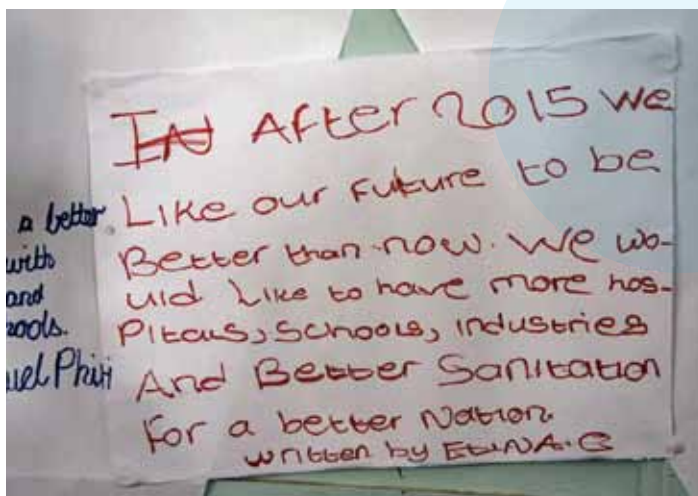 a better
with
and
ools.
uel Phiri
IN After 2015 we
Like our future to be
Better than now. We wo-
uld Like to have more hos-
Pitals, Schools, industries
And Better Sanitation
For a better Nation.
written by EtiNA.C